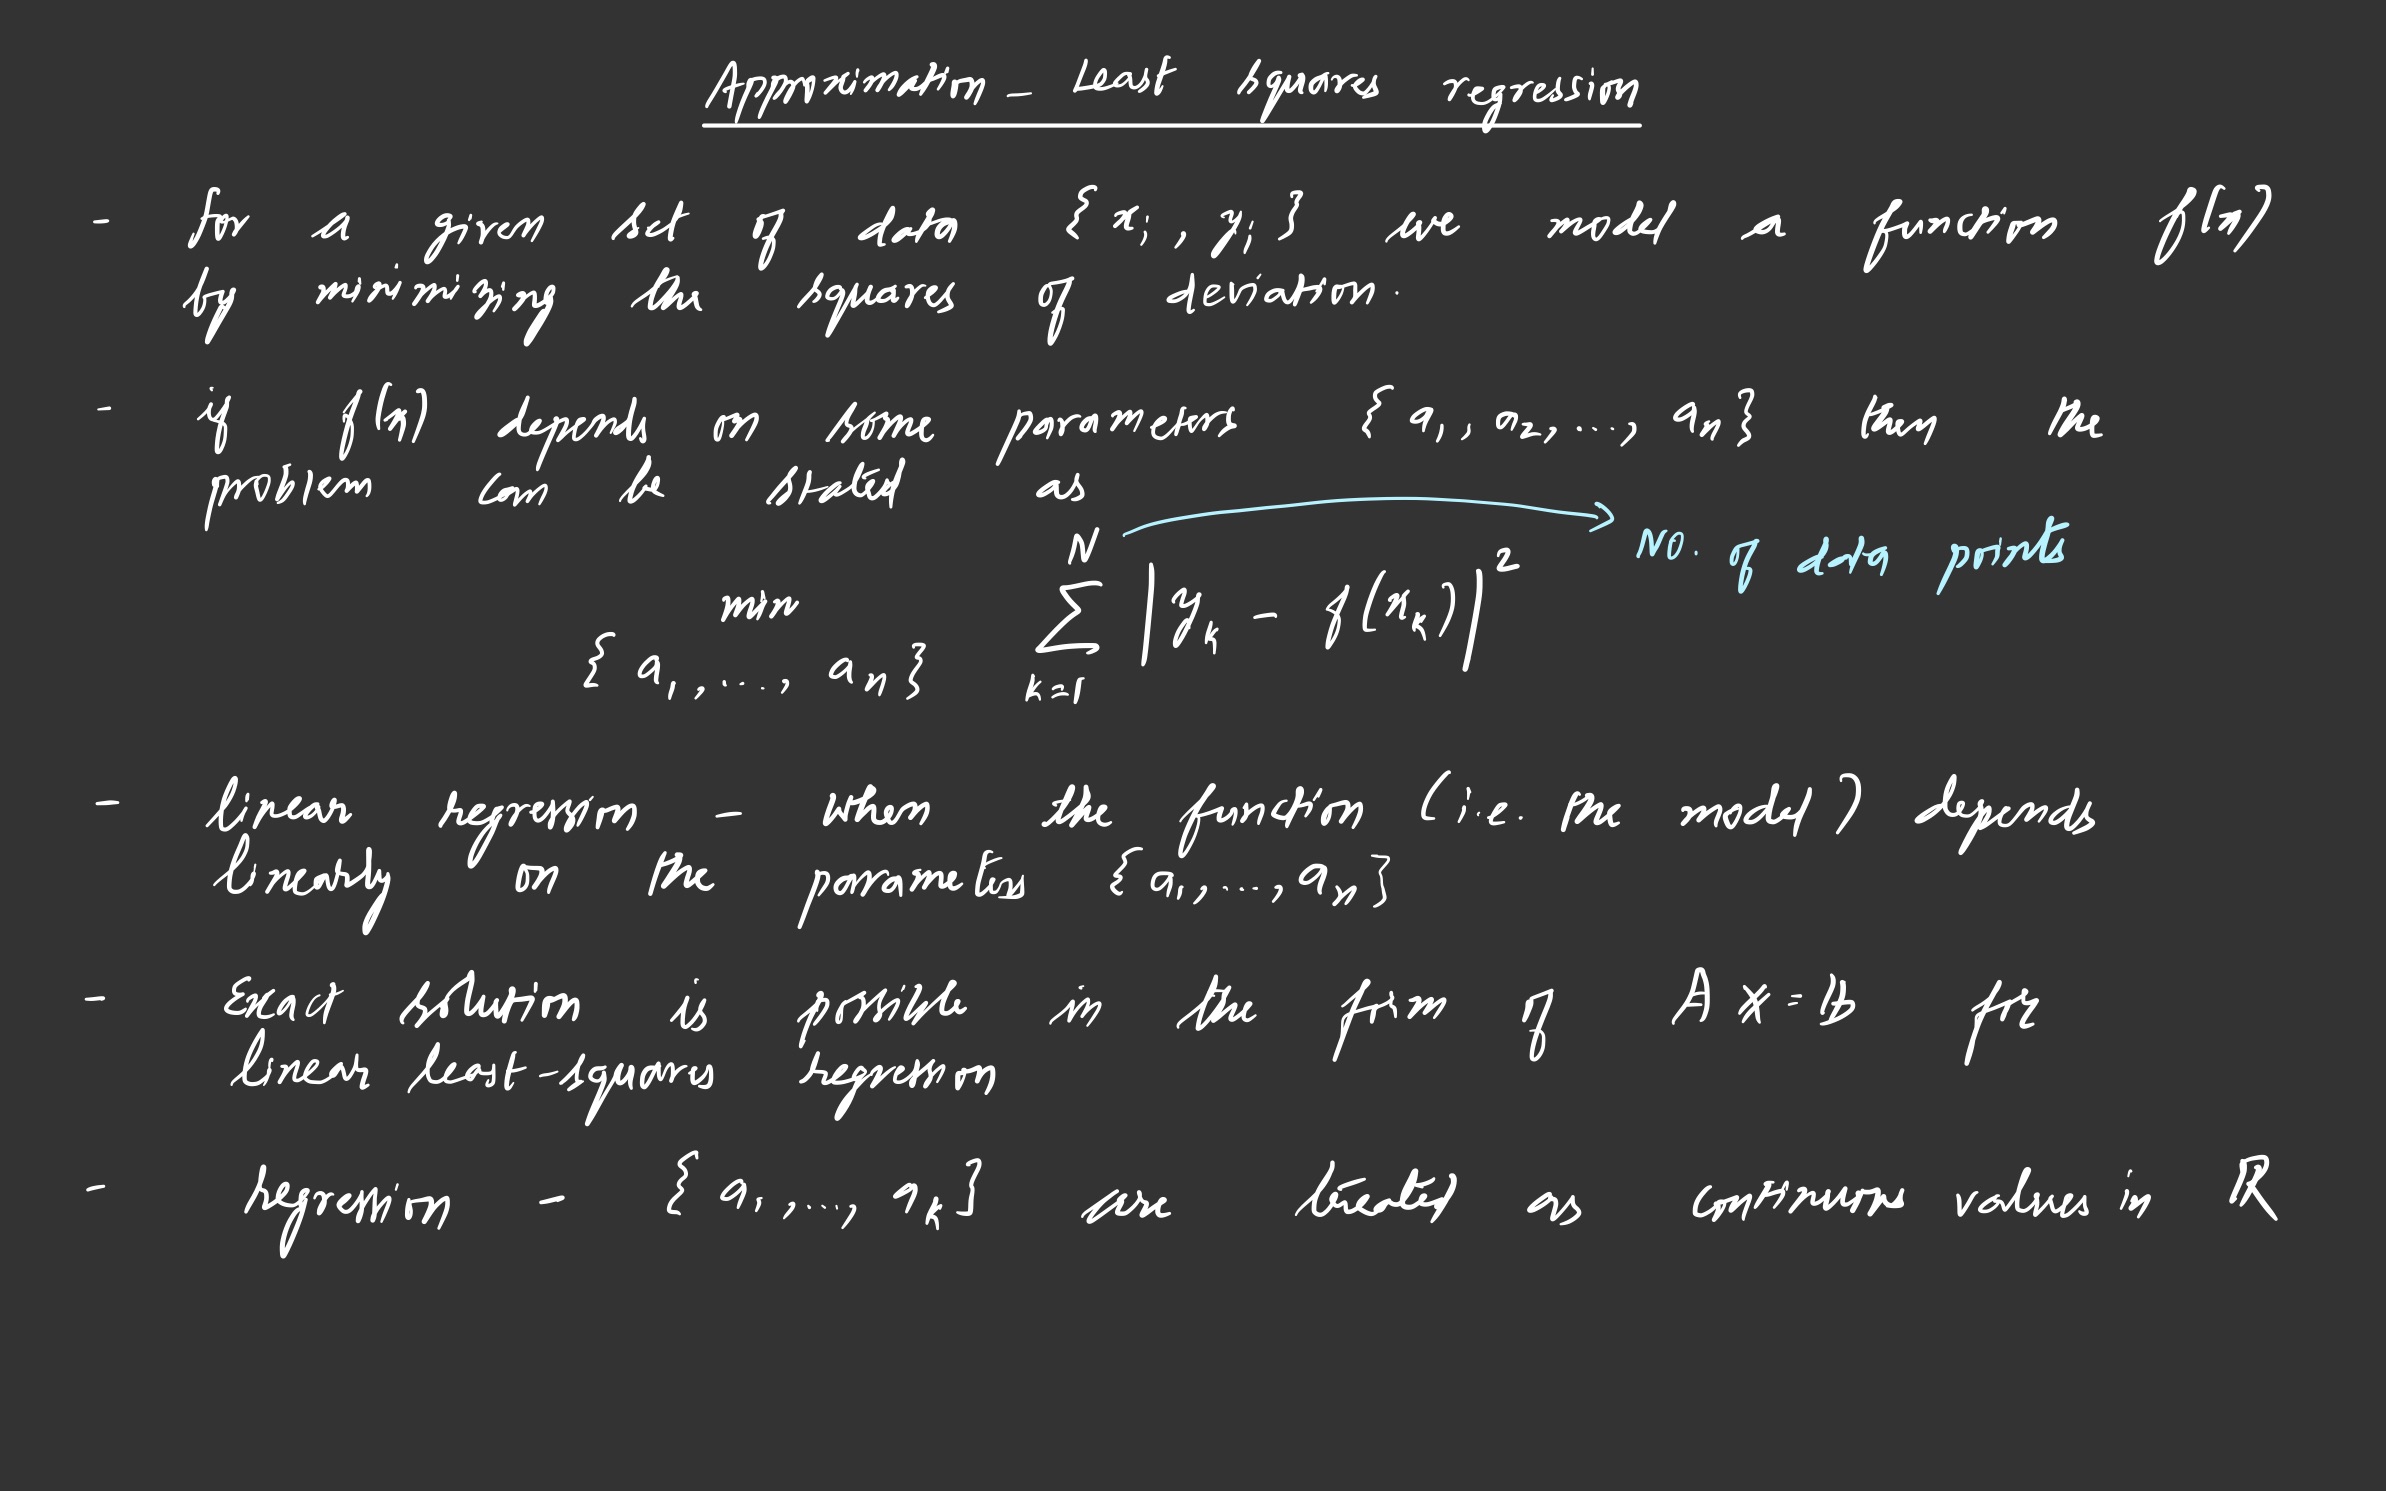 Approximation - Least squares regression
- for a given set of data {xi, yi} we model a function f(x)
by minimizing the squares of deviation.
- if f(x) depends on some parameters {a1, a2, ..., an} then the
problem can be stated as
min {a1, ..., an} ∑_{k=1}^{N} |yk - f(xk)|^2 → No. of data points
- linear regression - when the function (i.e. the model) depends
linearly on the parameters {a1, ..., an}
- Exact solution is possible in the form of Ax=b for
linear least-squares regression
- Regression - {a1, ..., ak} are treated as continuous values in R